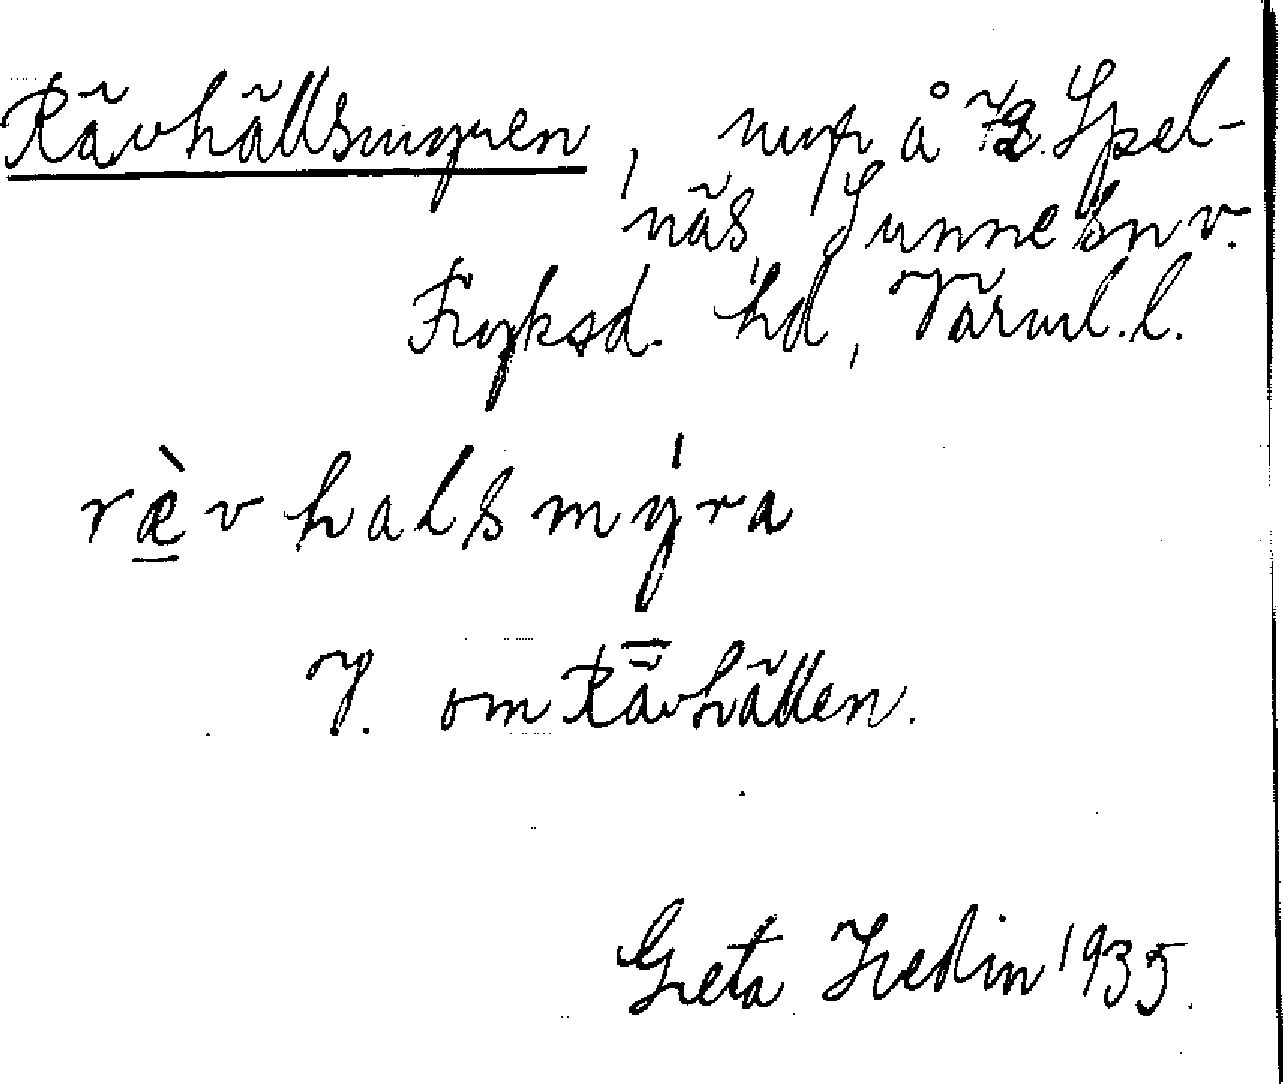 Rävhällsmyren, myr å Spel-
näs, Sunne sn v.
Fryksd. hd, Värml. l.
ræ̀vhalsmýra
om Rävhällen.
Greta Hedin 1935.